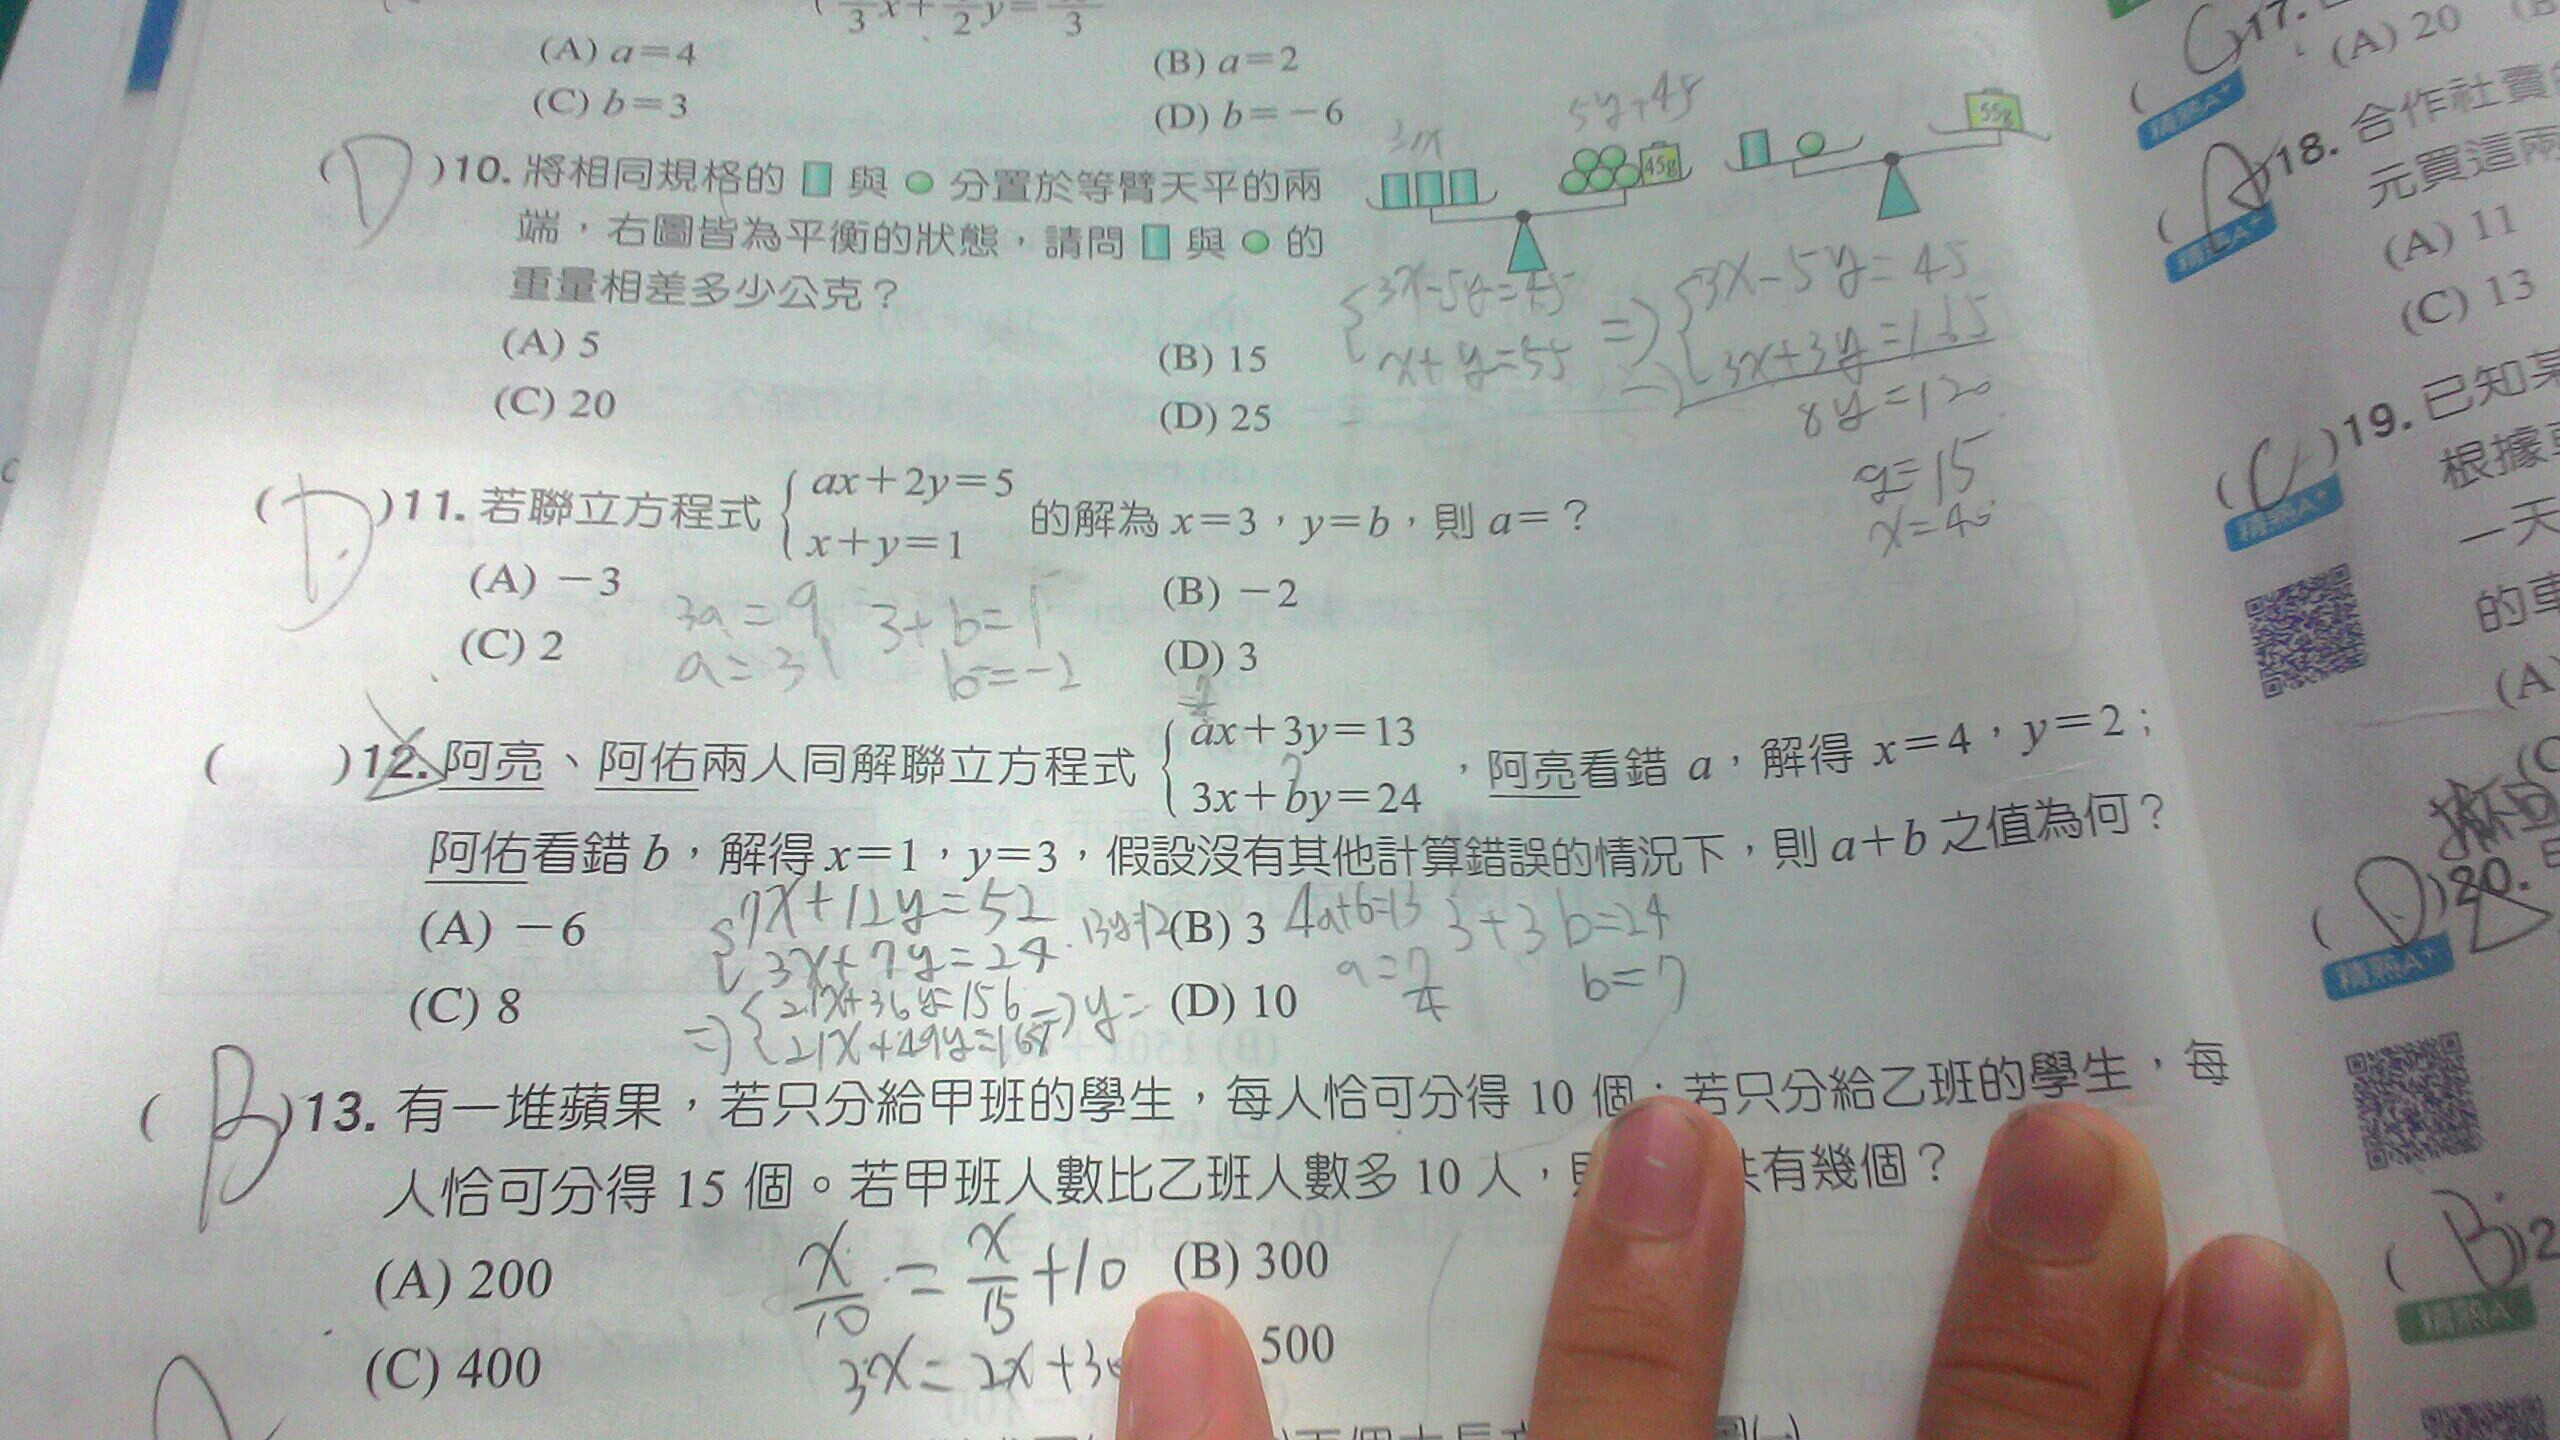 (A) a=4
(B) a=2
(C) b=3
(D) b=-6
(D)10. 將相同規格的 與 分置於等臂天平的兩
端，右圖皆為平衡的狀態，請問 與 的
重量相差多少公克？
3x
5y+45
45g
55g
(A) 5
(B) 15
(C) 20
(D) 25
3x-5y=45
x+y=55
⇒
3x-5y=45
3x+3y=165
8y=120
y=15
x=40
(D)11. 若聯立方程式 { ax+2y=5
x+y=1
的解為 x=3，y=b，則 a=？
(A) -3
(B) -2
(C) 2
(D) 3
3a=9
a=3
3+b=1
b=-2
( )12. 阿亮、阿佑兩人同解聯立方程式 { ax+3y=13
3x+by=24
，阿亮看錯 a，解得 x=4，y=2；
阿佑看錯 b，解得 x=1，y=3，假設沒有其他計算錯誤的情況下，則 a+b 之值為何？
(A) -6
(B) 3
(C) 8
(D) 10
7x+12y=52
3x+7y=24
13y=12
⇒ { 21x+36y=156
21x+49y=168
⇒ y=
4a+6=13
a=7/4
3+3b=24
b=7
(B)13. 有一堆蘋果，若只分給甲班的學生，每人恰可分得 10 個；若只分給乙班的學生，每
人恰可分得 15 個。若甲班人數比乙班人數多 10 人， 共有幾個？
(A) 200
(B) 300
(C) 400
500
x/10 = x/15 +10
3x=2x+30
(C)17.
(A) 20
精熟A+
(A)18. 合作社賣
元買這兩
精熟A+
(A) 11
(C) 13
(C)19. 已知某
根據
精熟A+
一天
的車
(A)
(C)
(D)20.
精熟A+
(B)2
精熟A